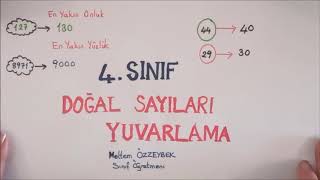 En Yakın Onluk
127 → 130
44 → 40
En Yakın Yüzlük
29 → 30
8971 → 9000
4. SINIF
DOĞAL SAYILARI
YUVARLAMA
Meltem ÖZZEYBEK
Sınıf Öğretmeni